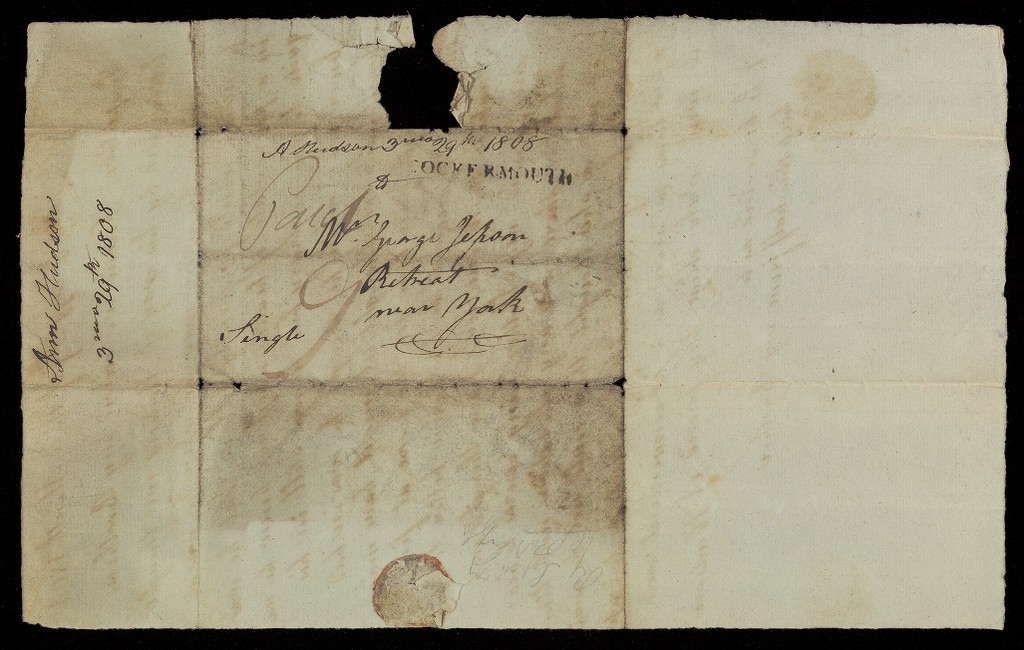 A Hudson 3 mo 29th 1808
COCKERMOUTH
Paid
To
Mr. George Jepson
Retreat
near York
Single
9
Ann Hudson
3 mo 29th 1808